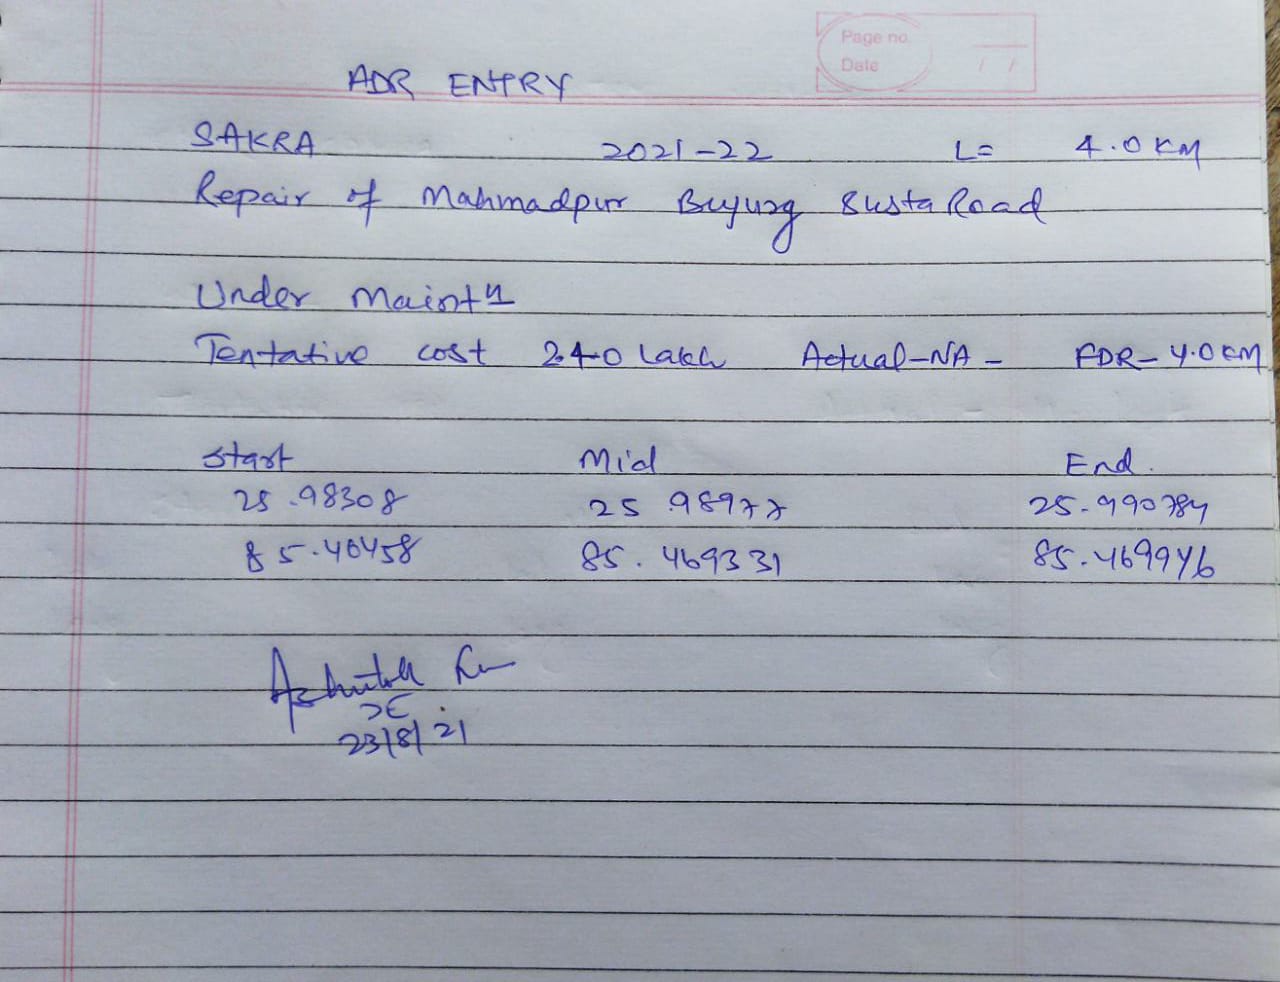 Page no.
Date / /
ADR ENTRY
SAKRA 2021-22 L= 4.0 KM
Repair of Mahmadpur Bujurg Susta Road
Under Maintn
Tentative cost 2.40 Lakh Actual-NA- FDR-4.0KM
Start Mid End.
25.98308 25.98977 25.990784
85.46458 85.469331 85.469946
JE
23/8/21